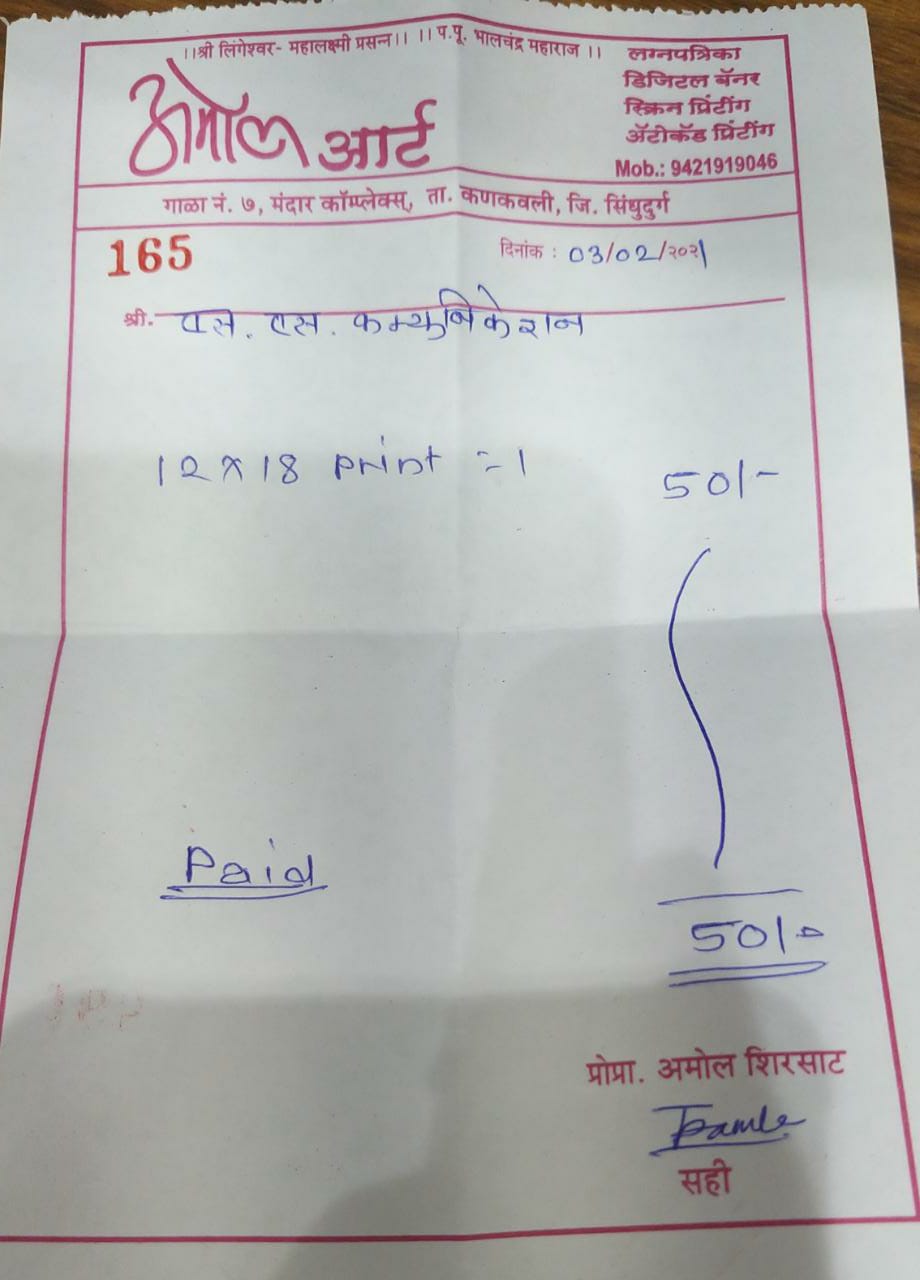 ।।श्री लिंगेश्वर- महालक्ष्मी प्रसन्न।। ।।प.पू. भालचंद्र महाराज ।।
अमोल आर्ट
लग्नपत्रिका
डिजिटल बॅनर
स्क्रिन प्रिंटींग
ॲटोकॅड प्रिंटींग
Mob.: 9421919046
गाळा नं. ७, मंदार कॉम्प्लेक्स्, ता. कणकवली, जि. सिंधुदुर्ग
165
दिनांक : 03/02/२०२१
श्री. एस. एस. कम्युनिकेशन
12 x 18 print = 1 50/-
Paid
50/-
प्रोप्रा. अमोल शिरसाट
सही